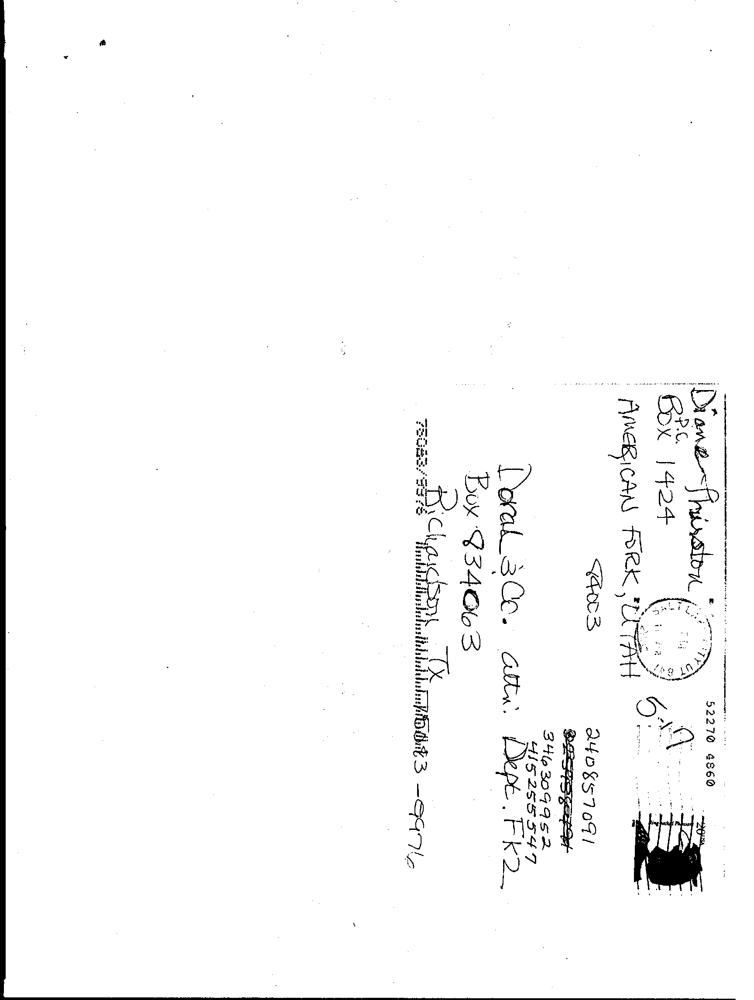 Diane Thirston
P.O.
BOX 1424
AMERICAN FORK, UTAH
84003
52270 4860
6-17
240857091
346309952
415255547
Doral & Co. attn: Dept. FK2
Box 834063
Richardson TX 75083-9976
75083/9976